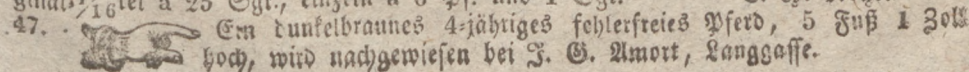 47. Ein dunkelbraunes 4-jähriges fehlerfreies Pferd, 5 Fuß 1 Zoll
hoch, wird nachgewiesen bei J. G. Amort, Langgasse.